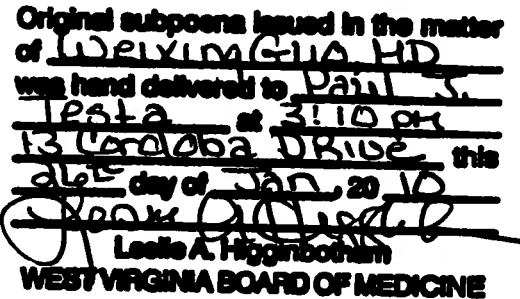 Original subpoena issued in the matter
of Weixing Guo, MD
was hand delivered to Paul J.
Testa at 3:10 PM
13 Cordoba Drive this
26th day of Jan, 20 10
Leslie A. Higginbotham
WEST VIRGINIA BOARD OF MEDICINE